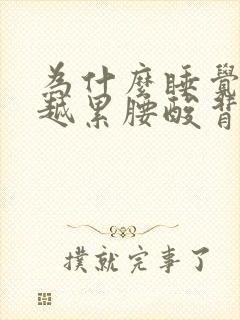 為什麼睡覺
越累腰酸背
撲就完事了